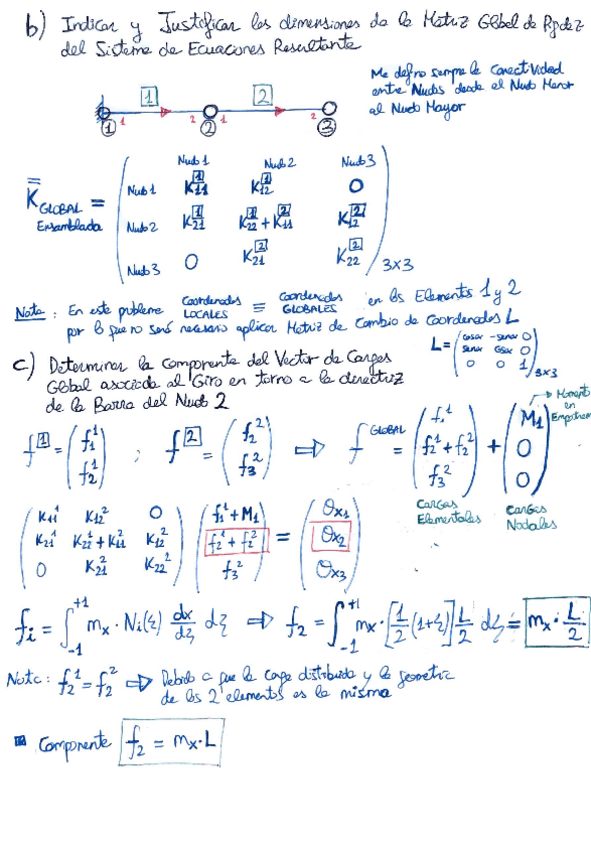 b) Indicar y Justificar las dimensiones de la Matriz Global de Rigidez
del Sistema de Ecuaciones Resultante
Me defino siempre la conectividad
entre Nudos desde el Nudo Menor
al Nudo Mayor
1 2
1 2 1 2
1 2 3
Nudo 1 Nudo 2 Nudo 3
Nudo 1 K11^1 K12^1 0
K GLOBAL Ensamblada = Nudo 2 K21^1 K22^1 + K11^2 K12^2
Nudo 3 0 K21^2 K22^2 3x3
Nota: En este problema Coordenadas LOCALES ≡ Coordenadas GLOBALES en los Elementos 1 y 2
por lo que no será necesario aplicar Matriz de Cambio de Coordenadas L
L = (cosα -senα 0
senα cosα 0
0 0 1) 3x3
c) Determinar la componente del Vector de Cargas
Global asociada al Giro en torno a la directriz
de la Barra del Nudo 2
Momento en Empotram
f^1 = (f1^1 f2^1) ; f^2 = (f2^2 f3^2) ⇒ f^GLOBAL = (f1^1 f2^1+f2^2 f3^2) + (M1 0 0)
Cargas Elementales Cargas Nodales
(K11^1 K12^2 0) (f1^1+M1) (θx1)
(K21^1 K22^1+K11^2 K12^2) (f2^1+f2^2) = (θx2)
(0 K21^2 K22^2) (f3^2) (θx3)
fi = ∫-1^+1 mx · Ni(ξ) dx/dξ dξ ⇒ f2 = ∫-1^+1 mx · [1/2 (1+ξ)] L/2 dξ = mx · L/2
Nota: f2^1 = f2^2 ⇒ Debido a que la carga distribuida y la geometría
de los 2 elementos es la misma
Componente f2 = mx · L